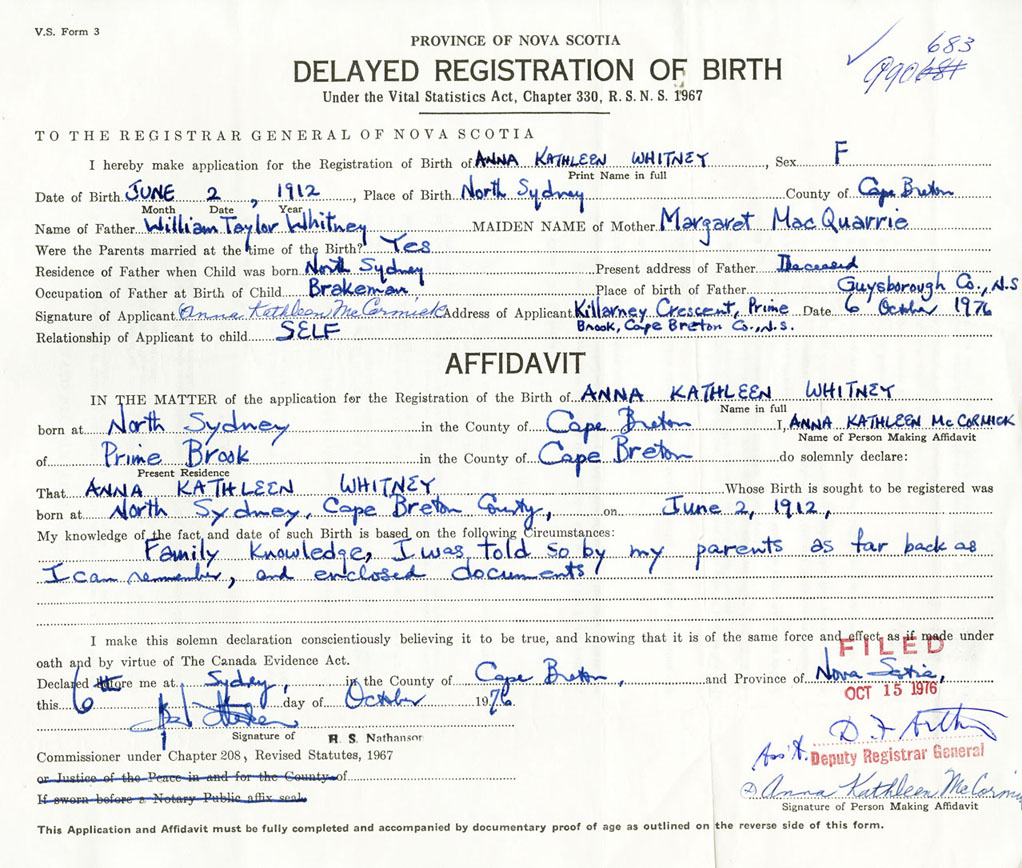 V.S. Form 3
PROVINCE OF NOVA SCOTIA
683
990681
DELAYED REGISTRATION OF BIRTH
Under the Vital Statistics Act, Chapter 330, R.S.N.S. 1967
TO THE REGISTRAR GENERAL OF NOVA SCOTIA
I hereby make application for the Registration of Birth of ANNA KATHLEEN WHITNEY, Sex F
Print Name in full
Date of Birth JUNE 2, 1912, Place of Birth North Sydney County of Cape Breton
Month Date Year
Name of Father William Taylor Whitney MAIDEN NAME of Mother Margaret MacQuarrie
Were the Parents married at the time of the Birth? Yes
Residence of Father when Child was born North Sydney Present address of Father Deceased
Occupation of Father at Birth of Child Brakeman Place of birth of Father Guysborough Co., N.S
Signature of Applicant Anna Kathleen McCormick Address of Applicant Killarney Crescent, Prime Date 6 October 1976
Brook, Cape Breton Co., N.S.
Relationship of Applicant to child SELF
AFFIDAVIT
IN THE MATTER of the application for the Registration of the Birth of ANNA KATHLEEN WHITNEY
Name in full
born at North Sydney in the County of Cape Breton I, ANNA KATHLEEN McCORMICK
Name of Person Making Affidavit
of Prime Brook in the County of Cape Breton do solemnly declare:
Present Residence
That ANNA KATHLEEN WHITNEY Whose Birth is sought to be registered was
born at North Sydney, Cape Breton County, on June 2, 1912,
My knowledge of the fact and date of such Birth is based on the following Circumstances:
Family Knowledge, I was told so by my parents as far back as
I can remember, and enclosed documents
I make this solemn declaration conscientiously believing it to be true, and knowing that it is of the same force and effect as if made under
oath and by virtue of The Canada Evidence Act.
FILED
Declared before me at Sydney, in the County of Cape Breton, and Province of Nova Scotia,
this 6th day of October 1976.
OCT 15 1976
Signature of R. S. Nathanson
Commissioner under Chapter 208, Revised Statutes, 1967
D. F. Arthur
Ass't. Deputy Registrar General
or Justice of the Peace in and for the County of
If sworn before a Notary Public affix seal.
Anna Kathleen McCormick
Signature of Person Making Affidavit
This Application and Affidavit must be fully completed and accompanied by documentary proof of age as outlined on the reverse side of this form.